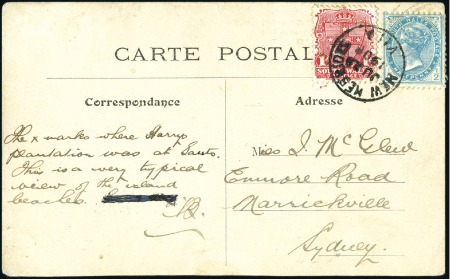 CARTE POSTAL
Correspondance
Adresse
The x marks where Harrys
plantation was at Santo.
This is a very typical
view of the island
beaches.
Miss J. McGlew
Enmore Road
Marrickville
Sydney.
NEW HEBRIDES
VILA